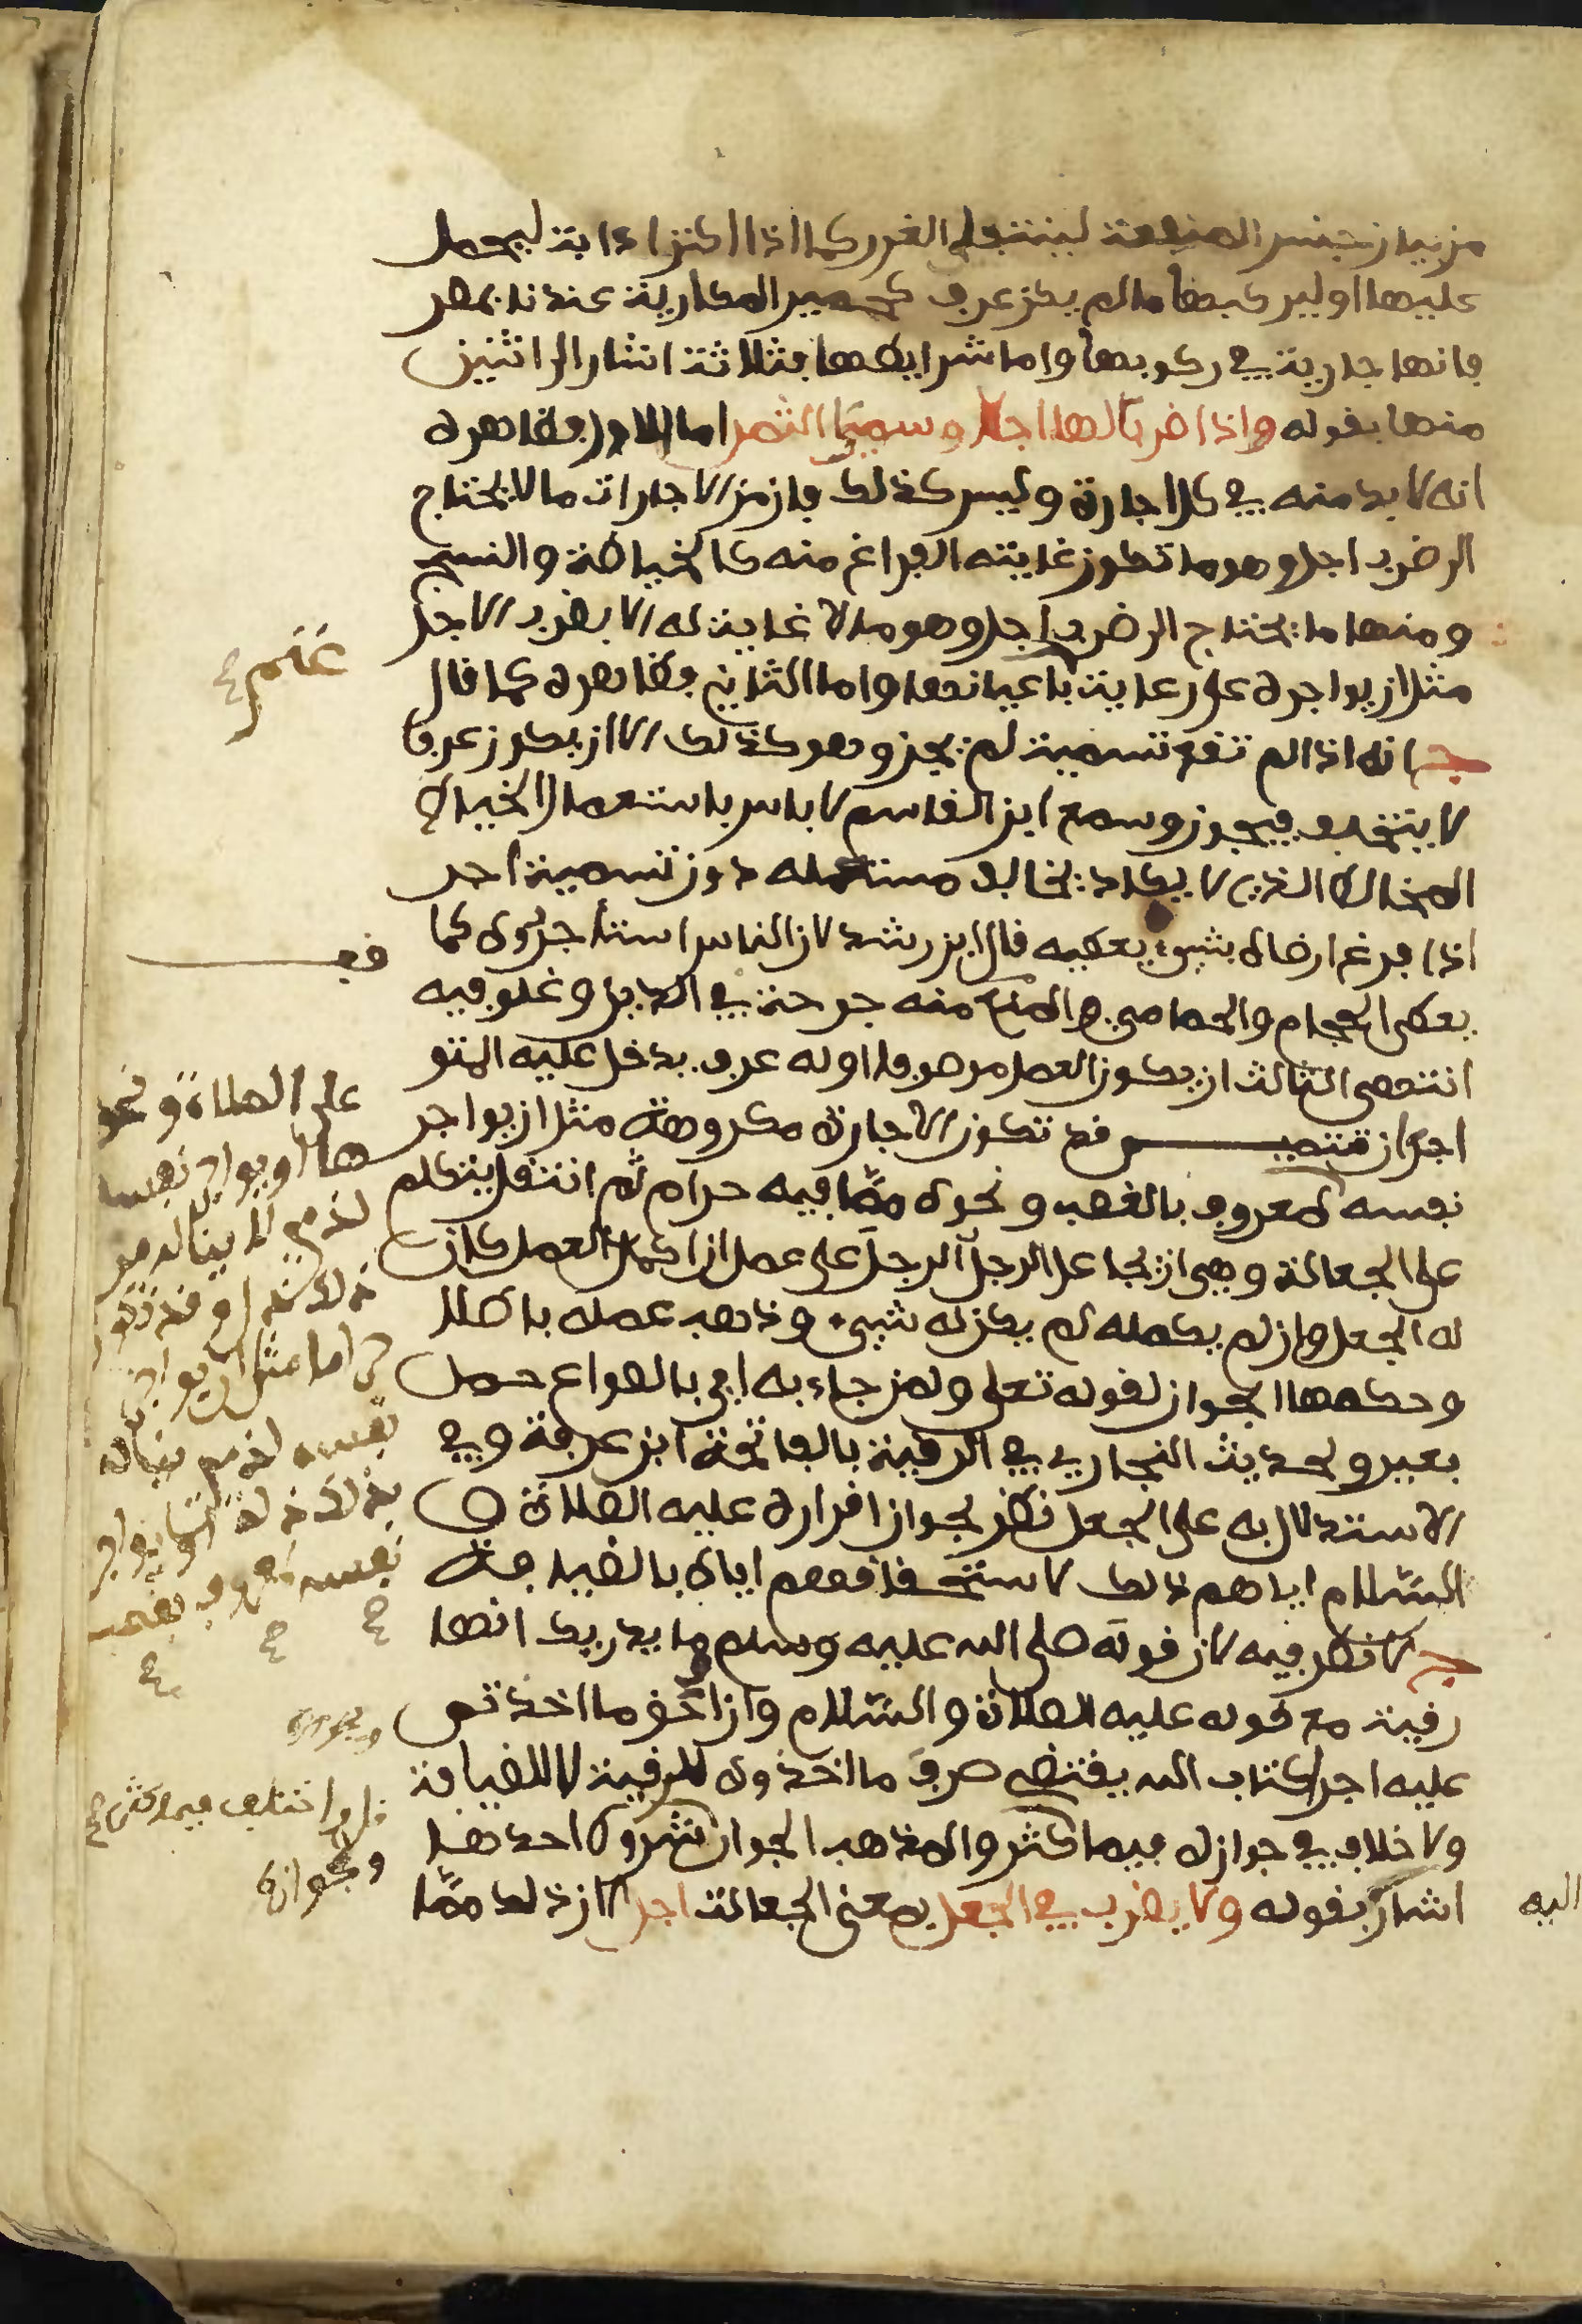 من بيان جنس المنفعة لينتفي الغرر كما اذا اكترا دابة ليحمل
عليها او ليركبها ما لم يكن عرف كحمير المكارية عندنا بمصر
فانها جارية في ركوبها واما شرايطها فثلاثة اشار الى اثنين
منها بقوله واذا ضربا لها اجلا وسميا الثمن اما الاول فظاهره
انه لا بد منه في كل اجارة وليس كذلك فان من الاجارات ما لا يحتاج
الى ضرب اجل وهو ما تكون غايته الفراغ منه كالخياطة والنسج
ومنها ما يحتاج الى ضرب اجل وهو ما لا غاية له الا بضرب الاجل
مثل ان يواجره على رعاية باعيانها واما الثاني فظاهره كما قال
ج انه اذا لم تقع تسمية لم يجز وهو كذلك الا ان يكون عرفا
لا يتخلف فيجوز وسمع ابن القاسم لا باس باستعمال الخياط
المخالط الذي لا يكاد يخالف مستعمله دون تسمية اجر
اذا فرغ ارضاه بشيء يعطيه قال ابن رشد لان الناس استاجروه كما
يعطى الحجام والحمامي والمنع منه حرج في الدين وغلو فيه
انتهى الثالث ان يكون العمل معروفا او له عرف يدخل عليه المتو
اجران تنبيه قد تكون الاجارة مكروهة مثل ان يواجر
نفسه لمعروف بالغصب ونحوه مما فيه حرام ثم انتقل يتكلم
على الجعالة وهي ان يجاعل الرجل الرجل على عمل ان اكمل العمل كان
له الجعل وان لم يكمله لم يكن له شيء وذهب عمله باطلا
وحكمها الجواز لقوله تعلى ولمن جاء به اي بالصواع حمل
بعير ولحديث البخاري في الرقية بالفاتحة ابن عرفة وفي
الاستدلال به على الجعل نظر لجواز اقراره عليه الصلاة و
السلام اياهم ذلك لاستحقاقهم اياه بالضيافة
ج لا نظر فيه لان قوله صلى الله عليه وسلم وما يدريك انها
رقية مع قوله عليه الصلاة والسلام وان احق ما اخذتم
عليه اجرا كتاب الله يقتضي صرف ما اخذوه للرقية لا للضيافة
ولا خلاف في جوازه فيما كثر والمذهب الجواز بشروط احدها
اشار بقوله ولا يضرب في الجعل بمعنى الجعالة اجل لان ذلك مما
غنم ح
على الصلاة ونحو
ها او يواجر نفسه
لذمي
نفسه لذمي
واختلف فيما كثر ح
وبجوازه
اليه